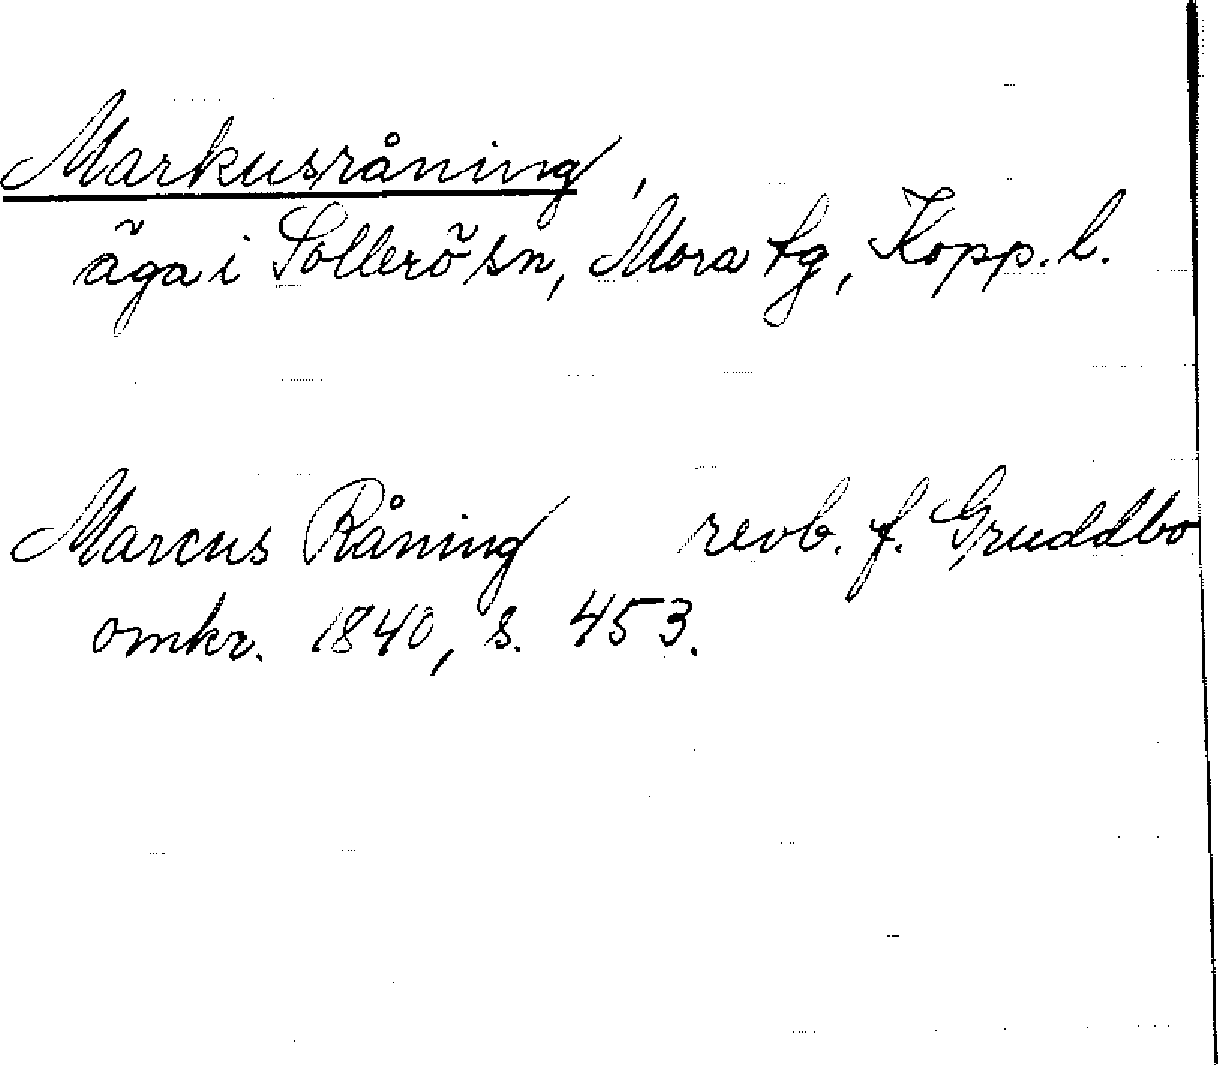 Markusråning,
äga i Sollerö sn, Mora tg, Kopp. l.
Marcus Råning revb. f. Gruddbo
omkr. 1840, s. 453.